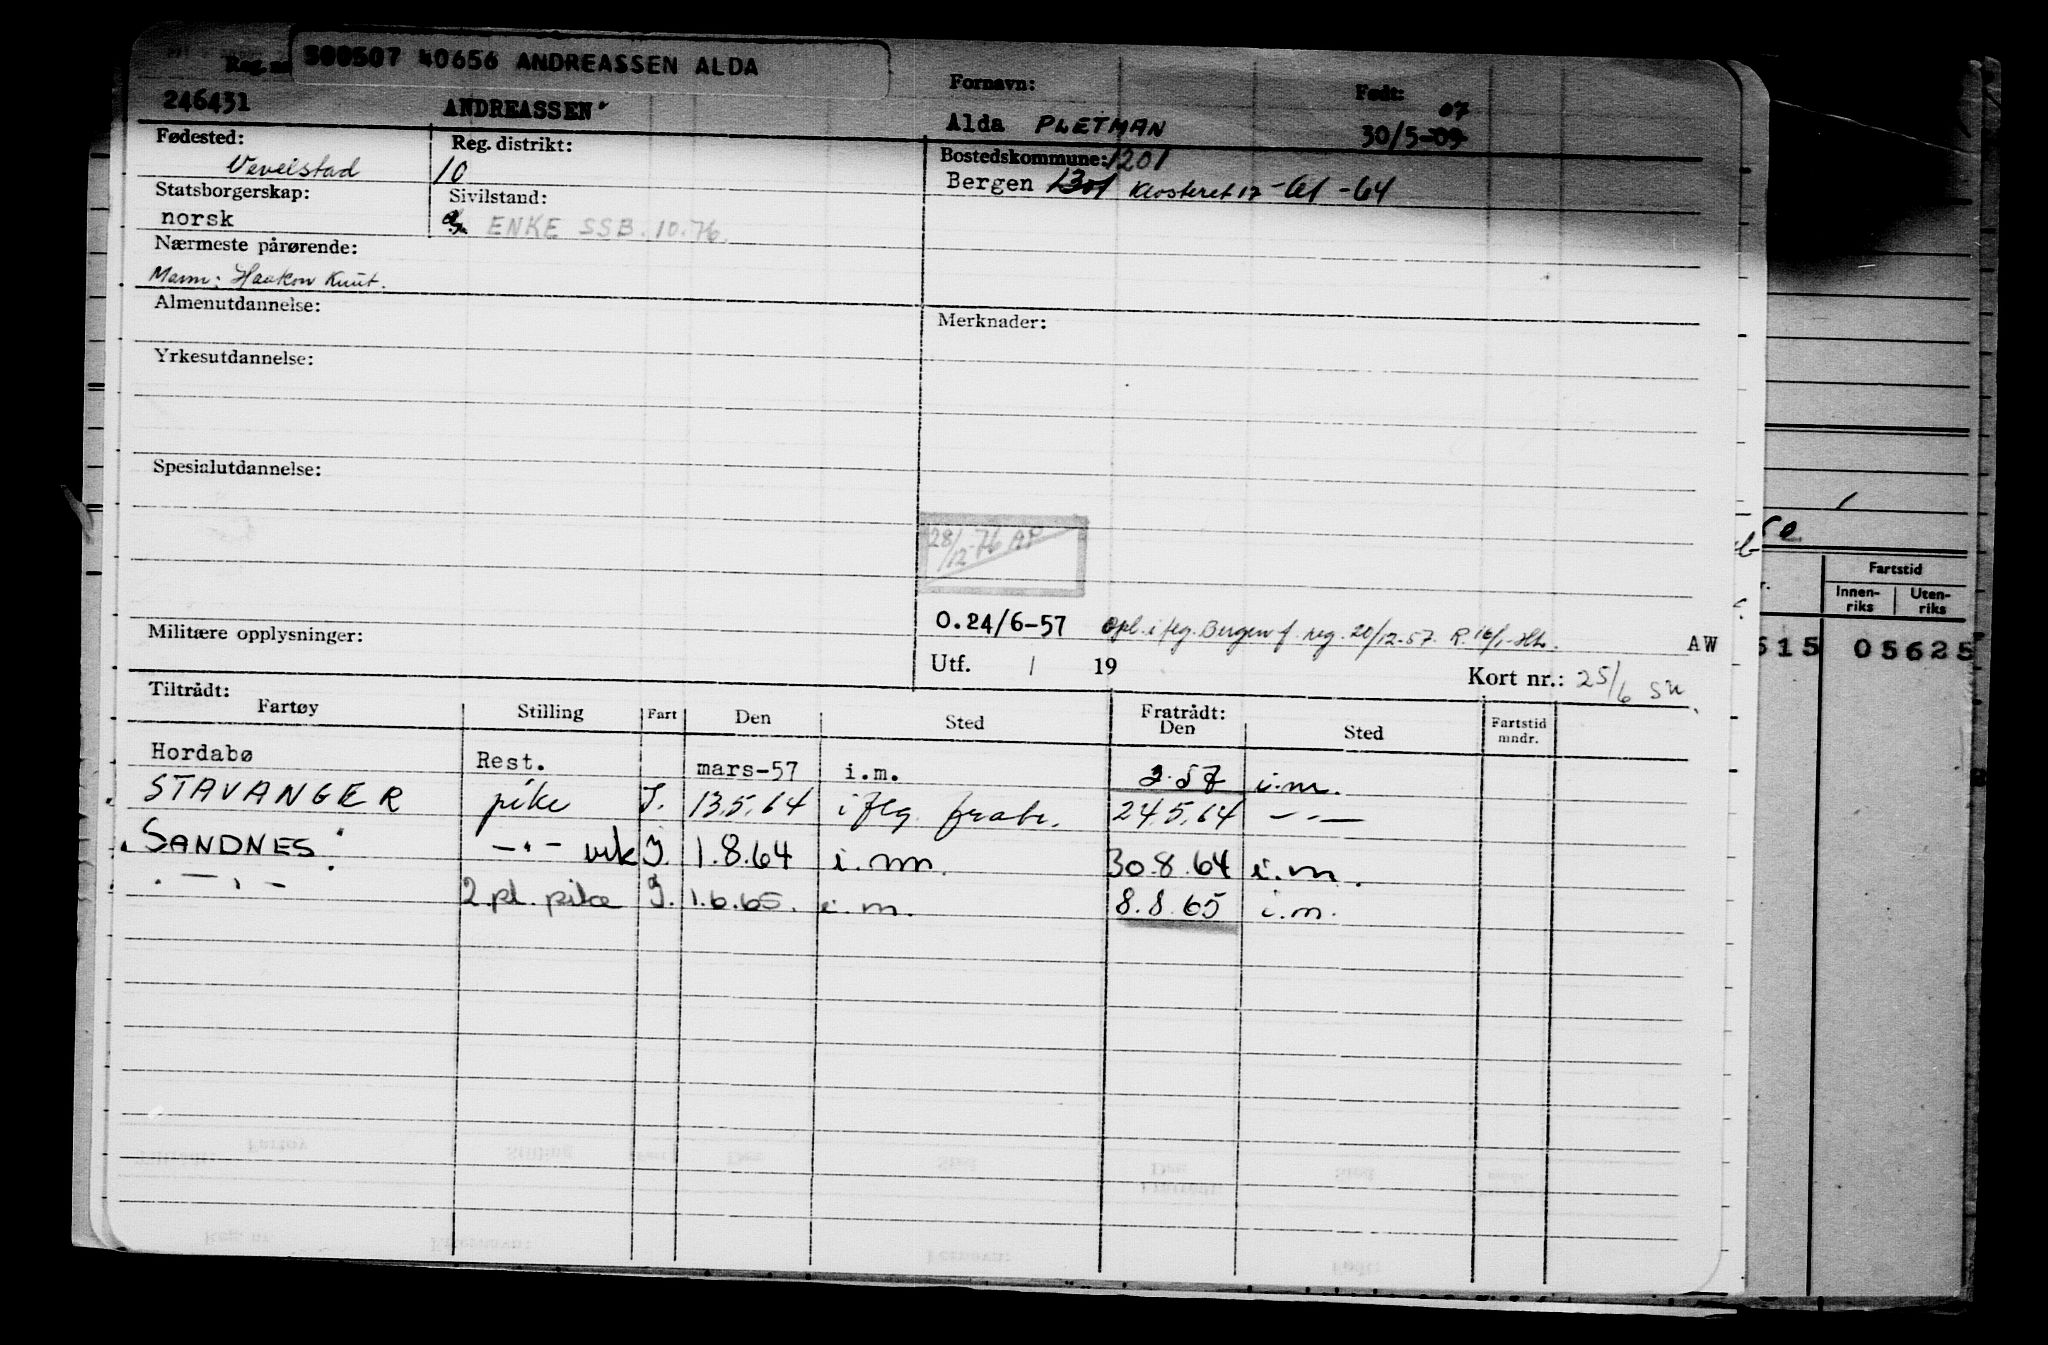 300507 40656 ANDREASSEN ALDA
Reg. nr
246431 ANDREASSEN
Fornavn: Født:
Alda PLETMAN 30/5-09 07
Fødested: Reg. distrikt: Bostedskommune: 1201
Vevelstad 10 Bergen 1301 Klosteret 17 -61 -64
Statsborgerskap: Sivilstand:
norsk ENKE SSB. 10.76.
Nærmeste pårørende:
Mann: Haakon Knut.
Almenutdannelse: Merknader:
Yrkesutdannelse:
Spesialutdannelse:
28/12-76 AP
O.24/6-57 Opl. i flg. Bergen f. reg. 20/12-57. R. 16/1
Militære opplysninger: AW
Utf. / 19 Kort nr.: 25/6 SN
Tiltrådt: Fratrådt:
Fartøy Stilling Fart Den Sted Den Sted Fartstid mndr.
Hordabø Rest. mars-57 i.m. 2.57 i.m.
STAVANGER pike I. 13.5.64 i flg. frabr. 24.5.64 -"-
"SANDNES" -"- vik I. 1.8.64 i.m. 30.8.64 i.m.
-"- 2.pl. pike I. 1.6.65. i.m. 8.8.65 i.m.
Fartstid
Innen-riks Uten-riks
515 05625